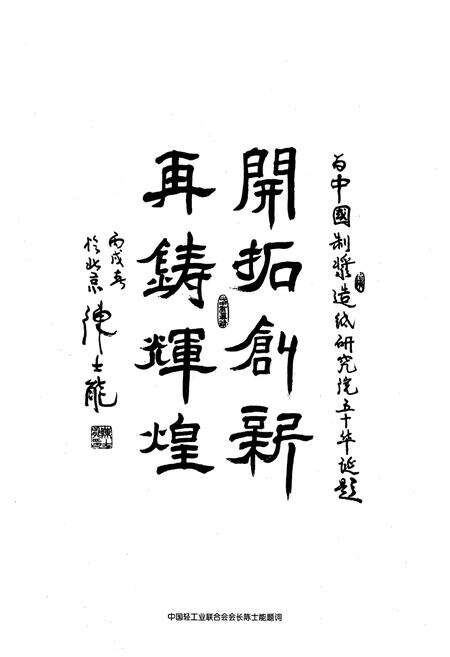 为中國制漿造纸研究院五十华诞题
開拓創新
再鑄輝煌
丙戌春
於北京
陳士能
中国轻工业联合会会长陈士能题词